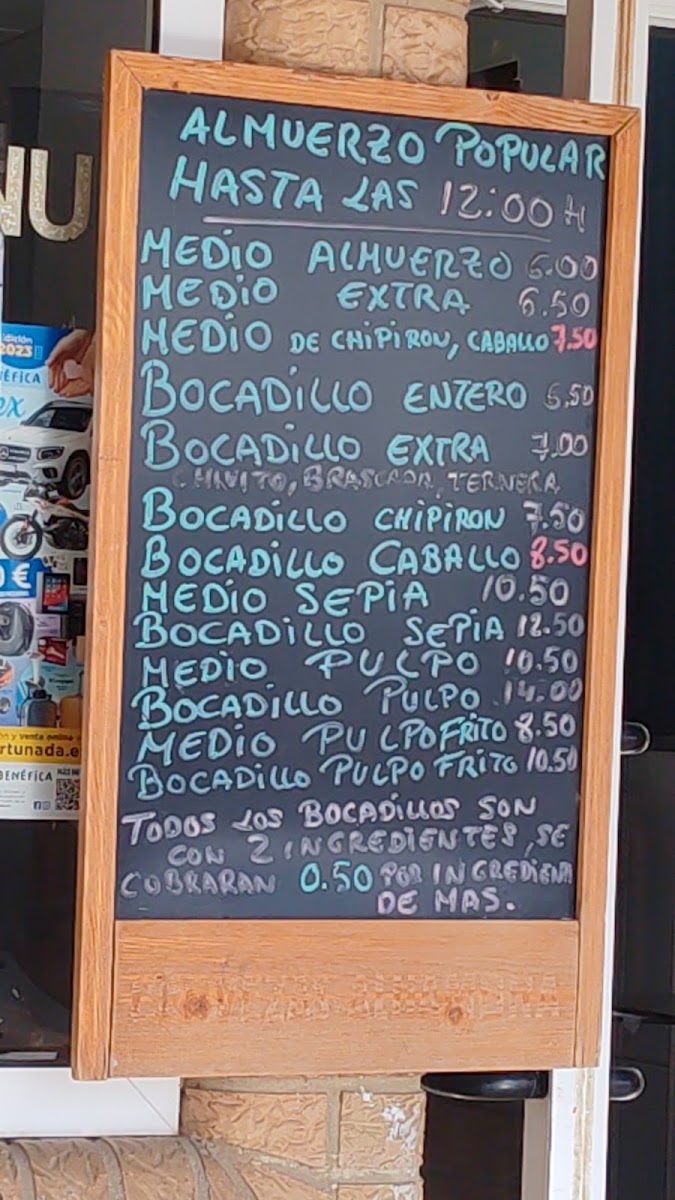 NU
2023
ortunada.e
BENÉFICA
ALMUERZO POPULAR
HASTA LAS 12:00 H
MEDIO ALMUERZO 6.00
MEDIO EXTRA 6.50
MEDIO DE CHIPIRON, CABALLO 7.50
BOCADILLO ENTERO 6,50
BOCADILLO EXTRA 7.00
CHIVITO, BRASCADA, TERNERA
BOCADILLO CHIPIRON 7.50
BOCADILLO CABALLO 8.50
MEDIO SEPIA 10.50
BOCADILLO SEPIA 12.50
MEDIO PULPO 10.50
BOCADILLO PULPO 14.00
MEDIO PULPO FRITO 8.50
BOCADILLO PULPO FRITO 10.50
TODOS LOS BOCADILLOS SON
CON 2 INGREDIENTES, SE
COBRARAN 0.50 POR INGREDIENT
DE MAS.